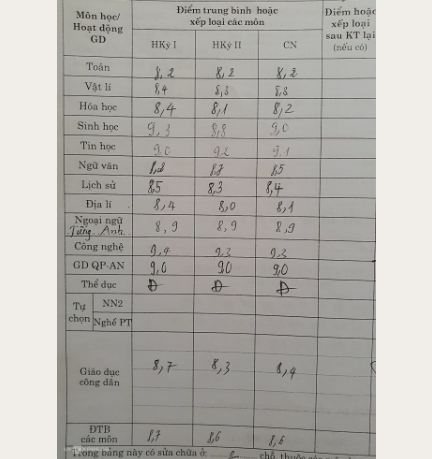 Môn học/ Hoạt động GD | Điểm trung bình hoặc xếp loại các môn | Điểm hoặc xếp loại sau KT lại (nếu có)
HKỳ I | HKỳ II | CN
Toán 8,2 8,2 8,2
Vật lí 8,4 8,3 8,3
Hóa học 8,4 8,1 8,2
Sinh học 9,3 8,8 9,0
Tin học 9,0 9,2 9,1
Ngữ văn 8,7 8,5
Lịch sử 8,5 8,3 8,4
Địa lí 8,4 8,0 8,1
Ngoại ngữ 8,9 8,9 8,9
Tiếng Anh
Công nghệ 9,4 9,3 9,3
GD QP-AN 9,0 9,0 9,0
Thể dục Đ Đ Đ
Tự chọn NN2
Nghề PT
Giáo dục công dân 8,7 8,3 8,4
ĐTB các môn 8,7 8,6 8,6
Trong bảng này có sửa chữa ở: chỗ, thuộc các môn